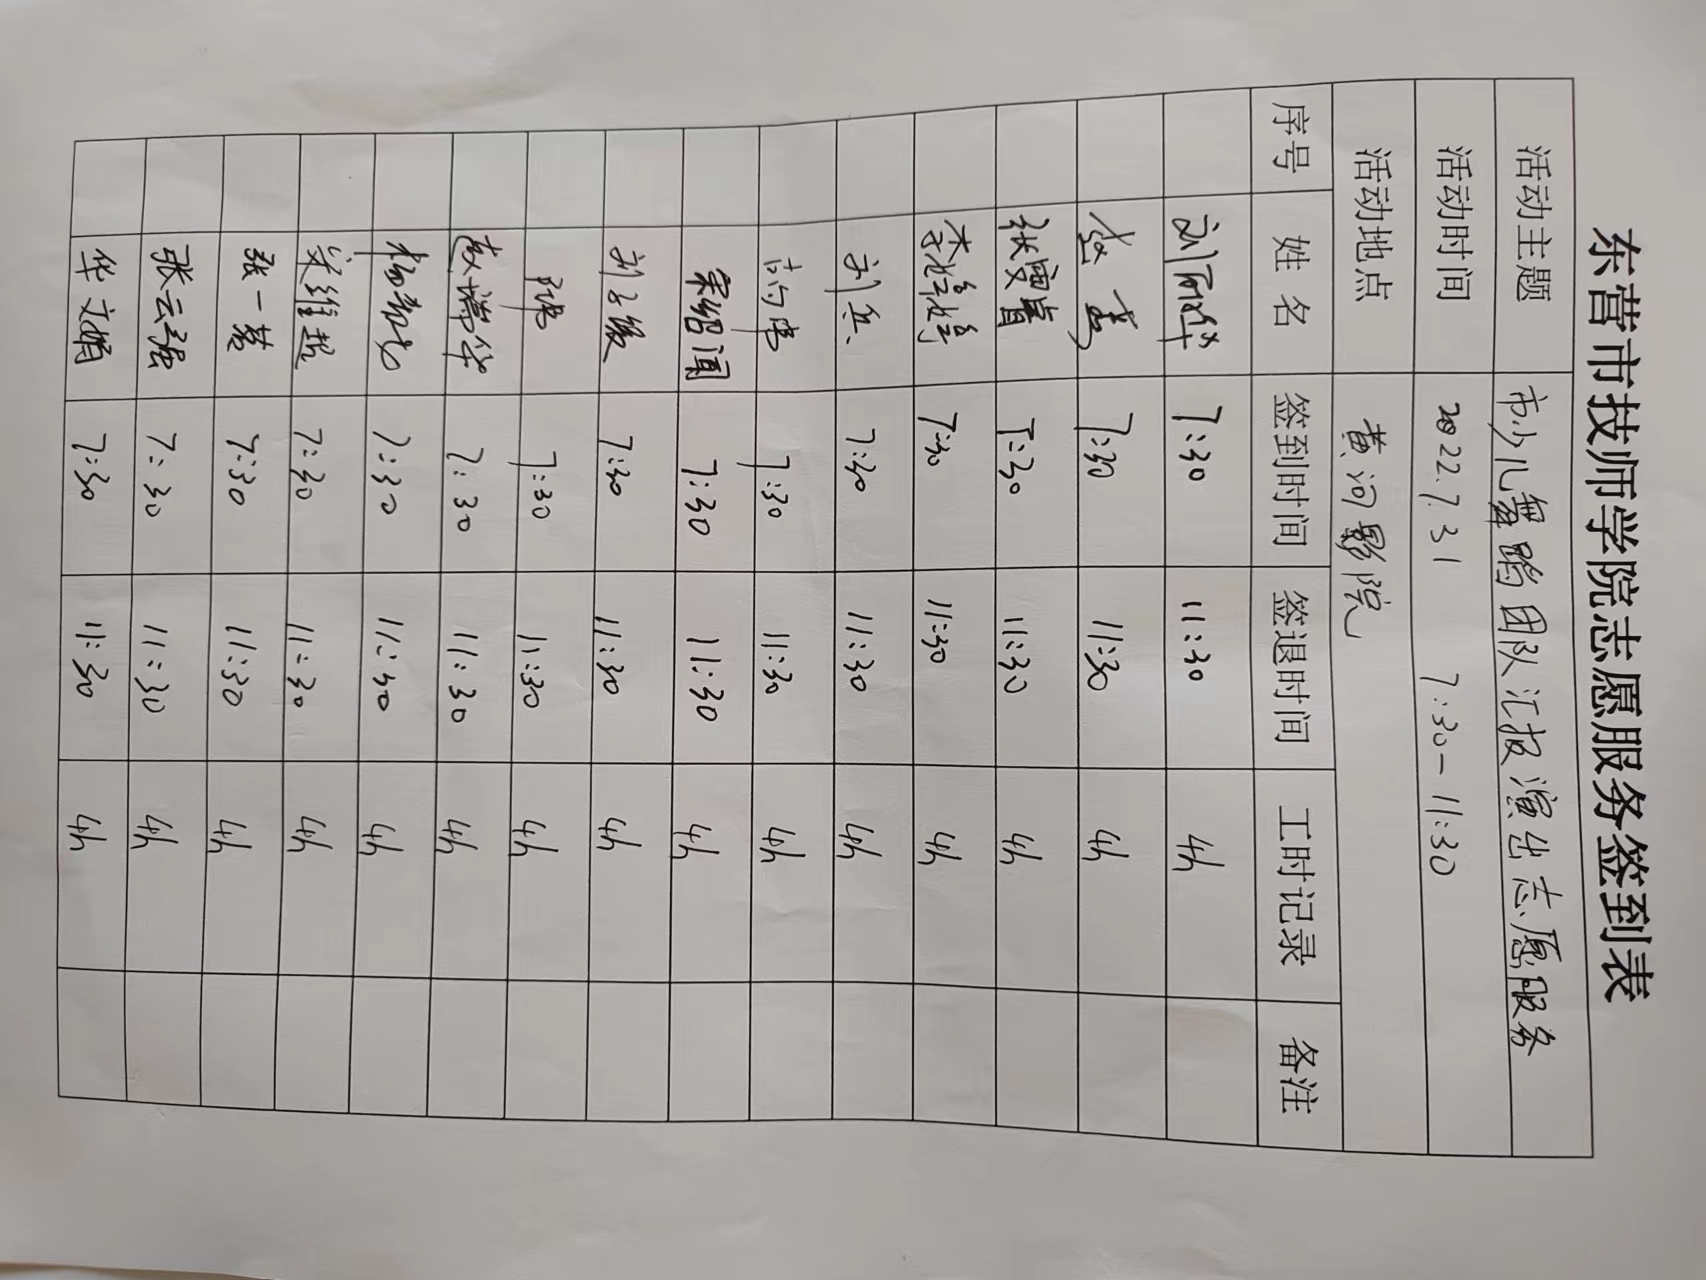 东营市技师学院志愿服务签到表
活动主题 市少儿舞蹈团队汇报演出志愿服务
活动时间 2022.7.31 7:30—11:30
活动地点 黄河影院
序号 姓名 签到时间 签退时间 工时记录 备注
刘丽华 7:30 11:30 4h
7:30 11:30 4h
7:30 11:30 4h
李婷婷 7:30 11:30 4h
刘兵 7:30 11:30 4h
7:30 11:30 4h
宋绍闻 7:30 11:30 4h
7:30 11:30 4h
7:30 11:30 4h
7:30 11:30 4h
7:30 11:30 4h
7:30 11:30 4h
张一 7:30 11:30 4h
张云强 7:30 11:30 4h
华文娟 7:30 11:30 4h